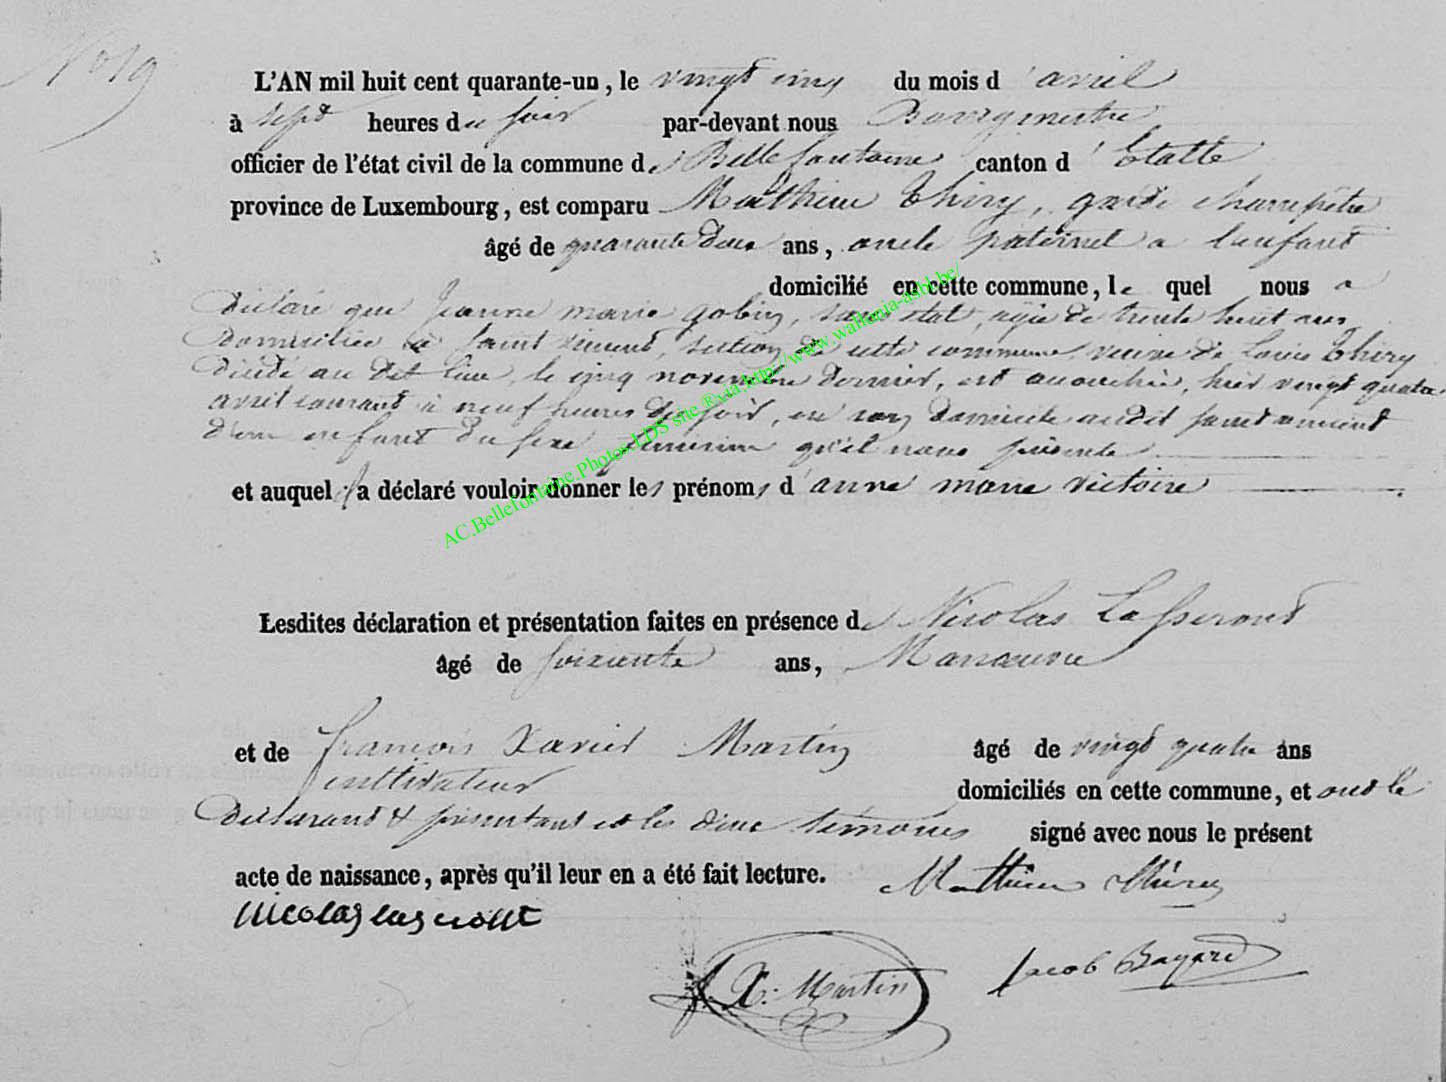 No 19
L'AN mil huit cent quarante-un, le vingt cinq du mois d'avril
à sept heures du soir par-devant nous Bourgmestre
officier de l'état civil de la commune de Bellefontaine canton d'Etalle
province de Luxembourg, est comparu Mathieu Thiry, garde champêtre
âgé de quarante deux ans, oncle paternel a l'enfant
domicilié en cette commune, le quel nous a
déclaré que Jeanne marie gobin, sans état, agée de trente huit ans
domiciliée à Saint vincent, section de cette commune, veuve de Louis Thiry
décédé au dit lieu, le cinq novembre dernier, est accouchée, hier vingt quatre
avril courant à neuf heures du soir, en son domicile audit saint vincent
d'un enfant du sexe féminin qu'il nous présente
et auquel il a déclaré vouloir donner les prénoms d'anne marie victoire
Lesdites déclaration et présentation faites en présence de Nicolas Lasseront
âgé de soixante ans, Manoeuvre
et de françois Xavier Martin âgé de vingt quatre ans
cultivateur domiciliés en cette commune, et ont le
déclarant & présentant et les deux témoins signé avec nous le présent
acte de naissance, après qu'il leur en a été fait lecture. Mathieu Thiry
Nicolas
f. X. Martin Jacob Bayard
AC.Bellefontaine.Photos.LDS site Exta,http://www.wallonia-asbl.be/